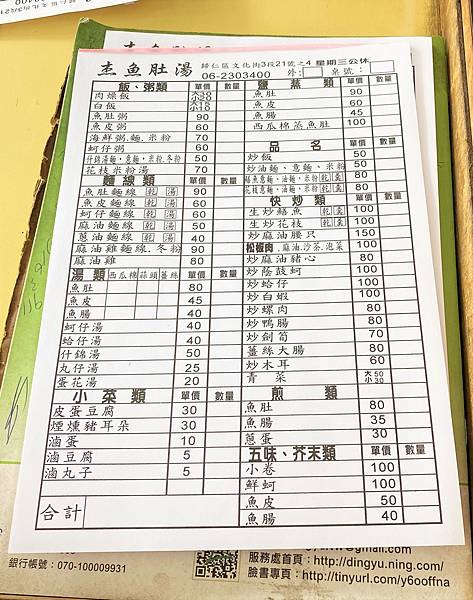 杰魚肚湯 歸仁區文化街3段21號之4 星期三公休
06-2303400 外: 桌號:
飯、粥類 單價 數量
肉燥飯 大30 小20
白飯
魚肚粥 90
魚皮粥 60
海鮮粥.麵.米粉 70
蚵仔粥 60
什錦湯麵、意麵、米粉.冬粉 50
花枝米粉湯 70
麵線類 單價 數量
魚肚麵線 乾 湯 90
魚皮麵線 乾 湯 60
蚵仔麵線 乾 湯 60
麻油麵線 乾 湯 50
蔥油麵線 乾 湯 40
麻油雞麵線.冬粉 90
麻油雞 80
湯類 西瓜棉 蒜頭 薑絲 單價 數量
魚肚 80
魚皮 45
魚腸 40
蚵仔湯 45
蛤仔湯 40
什錦湯 50
丸仔湯 25
蛋花湯 20
小菜類 單價 數量
皮蛋豆腐 30
煙燻豬耳朵 30
滷蛋 10
滷豆腐 5
滷丸子 5
合計
鹽蒸類 單價 數量
魚肚 90
魚皮 60
魚腸 50
西瓜棉蒸魚肚 100
品名 單價 數量
炒飯 50
炒油麵、意麵、米粉 50
鱔魚意麵、油麵、米粉 乾 羹 80
花枝意麵、油麵、米粉 乾 羹 80
快炒類 單價 數量
生炒鱔魚 乾 羹 100
生炒花枝 乾 羹 100
炒麻油腰只 150
松板肉、麻油.沙茶.泡菜 100
炒麻油豬心 80
炒蔭鼓蚵 100
炒蛤仔 100
炒白蝦 100
炒螺肉 80
炒鴨腸 80
炒劍筍 70
薑絲大腸 80
炒木耳 60
青菜 大50 小30
煎類 單價 數量
魚肚 80
魚腸 35
蔥蛋 30
五味、芥末類 單價 數量
小卷 100
鮮蚵 100
魚皮 50
魚腸 40
銀行帳號：070-100009931
服務處首頁：http://dingyu.ning.com/
臉書專頁：http://tinyurl.com/y6ooffna